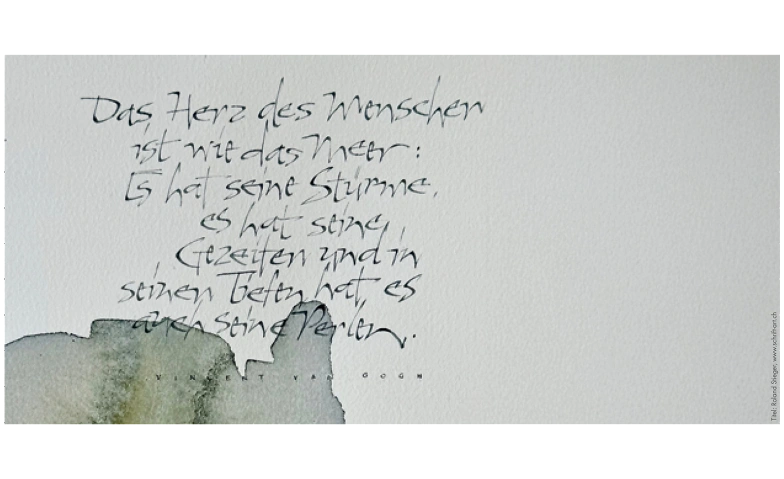 Das Herz des Menschen
ist wie das Meer:
Es hat seine Stürme,
es hat seine
Gezeiten und in
seinen Tiefen hat es
auch seine Perlen.
VINCENT VAN GOGH
Titel: Roland Stieger, www.schriftart.ch